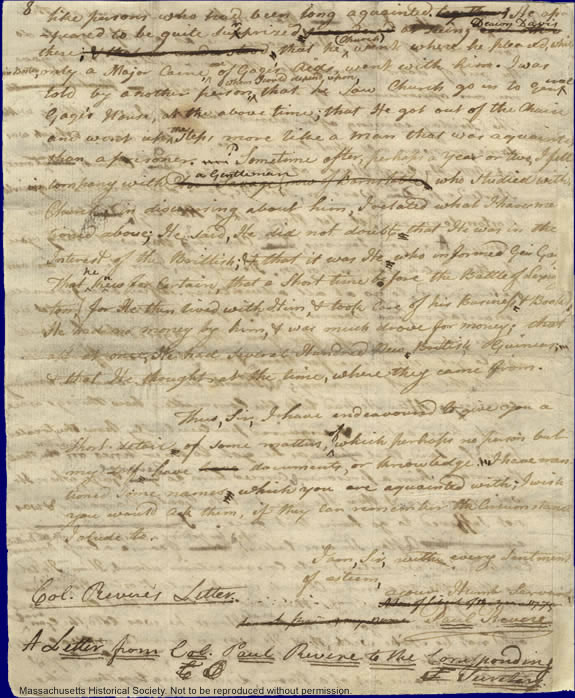 8 like persons who had been long aquainted. He ap
peared to be quite suprized at seing Deacon Davis
there; that he (Church) went where he pleased, while
only a Major Caine, one of Gages Aids, went with him. I was
told by another person whom I could depend upon, that he saw Church go in to General
Gage's House, at the above time; that He got out of the Chaise
and went up the steps more like a man that was aquainted
than a prisoner. Sometime after, perhaps a year or two, I fell
in company with a Gentleman who studied with
Church in discoursing about him, I related what I have men
tioned above; He said, He did not doubt that He was in the
Interest of the Brittish; & that it was He who informed Gen. Ga
That he knew for Certain, that a Short time before the Battle of Lexin
ton, for He then lived with Him, & took Care of his Business & Books
He had no money by him, & was much drove for money; that
all at once, He had several Hundred New British Guineas,
& that He thought at the time, where they came from.
Thus, Sir, I have endeavoured to give you a
Short detail of some matters, of which perhaps no person but
my self have documents, or knowledge. I have men
tioned some names which you are aquainted with; I wish
you would ask them, if they can remember the Circumstance
I alude to.
I am, Sir, with every Sentiment
of esteem,
your Humb Servant
Col. Revere's Letter.
Paul Revere
A Letter from Col. Paul Revere to the Corresponding
Secretary
Massachusetts Historical Society. Not to be reproduced without permission.